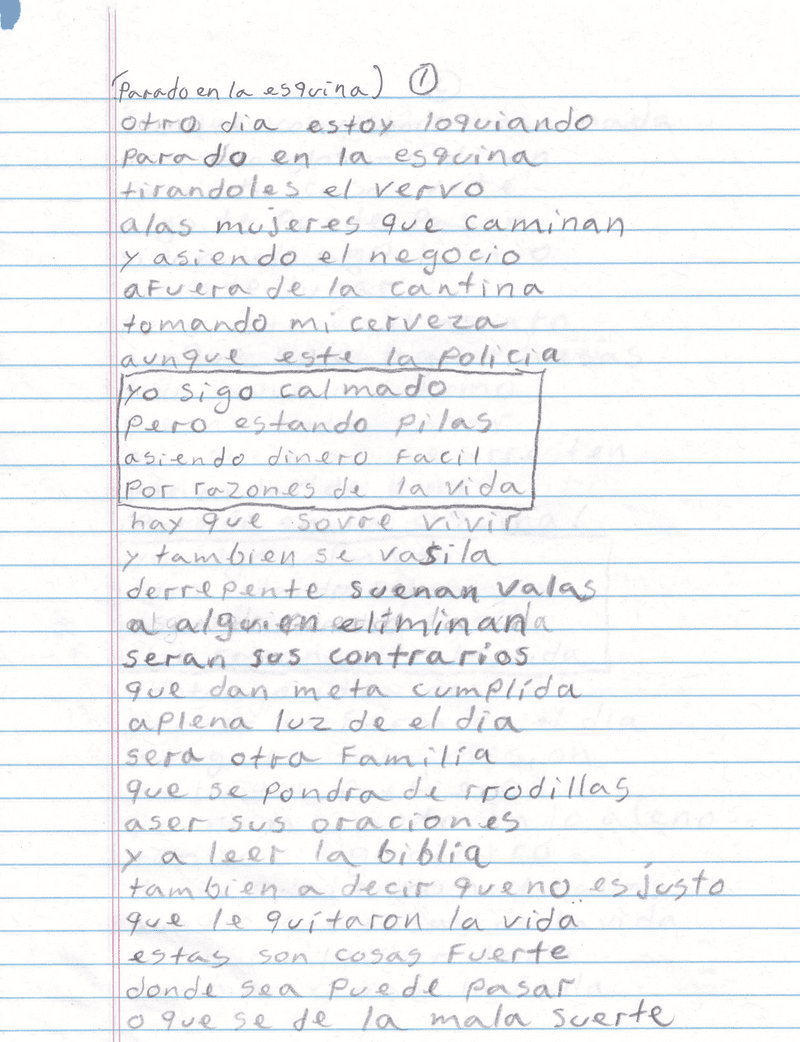 (Parado en la esquina) ①
otro dia estoy loquiando
parado en la esquina
tirandoles el vervo
alas mujeres que caminan
y asiendo el negocio
afuera de la cantina
tomando mi cerveza
aunque este la policia
yo sigo calmado
pero estando pilas
asiendo dinero facil
por razones de la vida
hay que sovre vivir
y tambien se vasila
derrepente suenan valas
a alguien eliminan
seran sus contrarios
que dan meta cumplida
aplena luz de el dia
sera otra familia
que se pondra de rrodillas
aser sus oraciones
y a leer la biblia
tambien a decir que no es justo
que le quitaron la vida
estas son cosas fuerte
donde sea puede pasar
o que se de la mala suerte